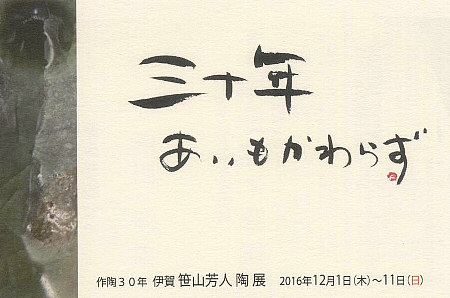 三十年
あいもかわらず
作陶３０年 伊賀 笹山芳人 陶 展 2016年12月1日(木)～11日(日)